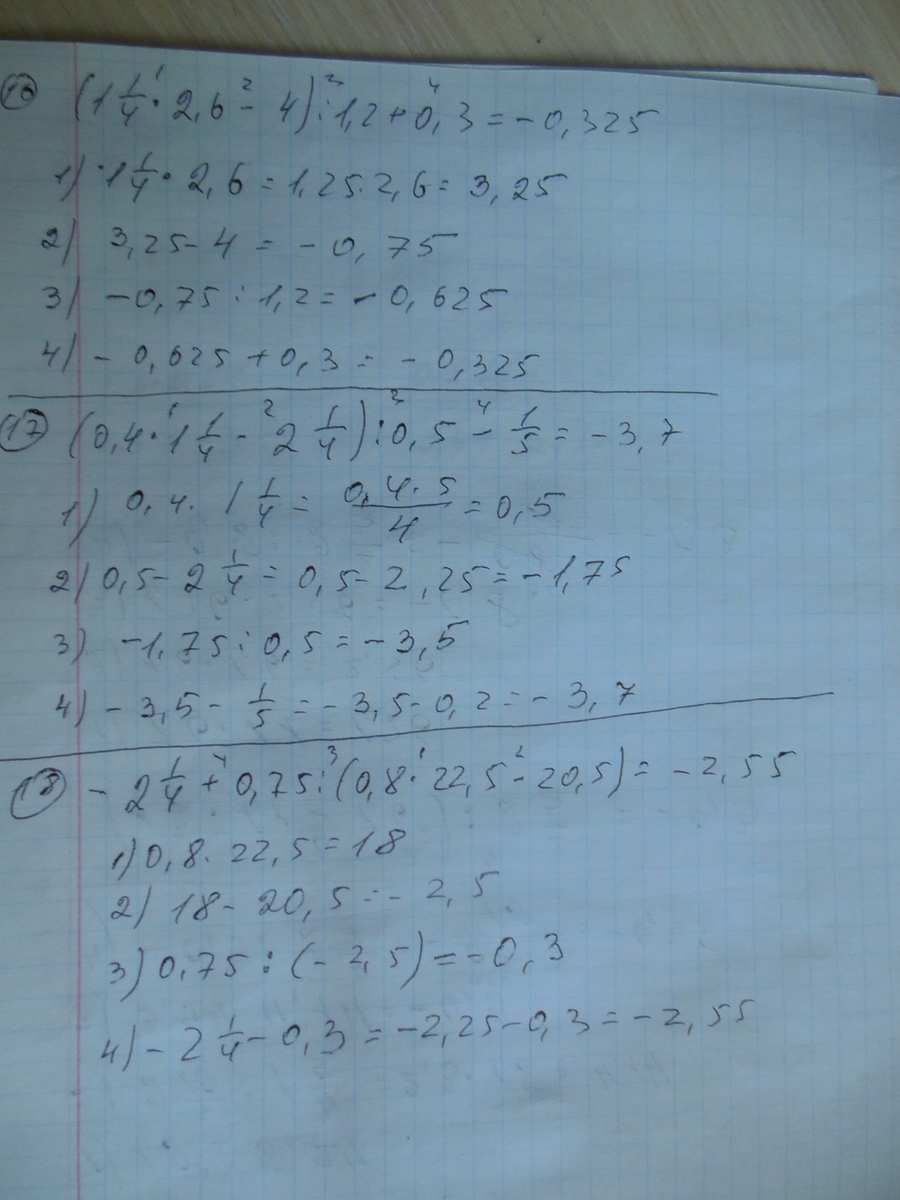 16 (1 1/4 · 2,6 - 4) : 1,2 + 0,3 = - 0,325
1) 1 1/4 · 2,6 = 1,25 · 2,6 = 3,25
2) 3,25 - 4 = - 0,75
3) - 0,75 : 1,2 = - 0,625
4) - 0,625 + 0,3 = - 0,325
17 (0,4 · 1 1/4 - 2 1/4) : 0,5 - 1/5 = - 3,7
1) 0,4 · 1 1/4 = 0,4 · 5/4 = 0,5
2) 0,5 - 2 1/4 = 0,5 - 2,25 = - 1,75
3) - 1,75 : 0,5 = - 3,5
4) - 3,5 - 1/5 = - 3,5 - 0,2 = - 3,7
18 - 2 1/4 + 0,75 : (0,8 · 22,5 - 20,5) = - 2,55
1) 0,8 · 22,5 = 18
2) 18 - 20,5 = - 2,5
3) 0,75 : (- 2,5) = - 0,3
4) - 2 1/4 - 0,3 = - 2,25 - 0,3 = - 2,55